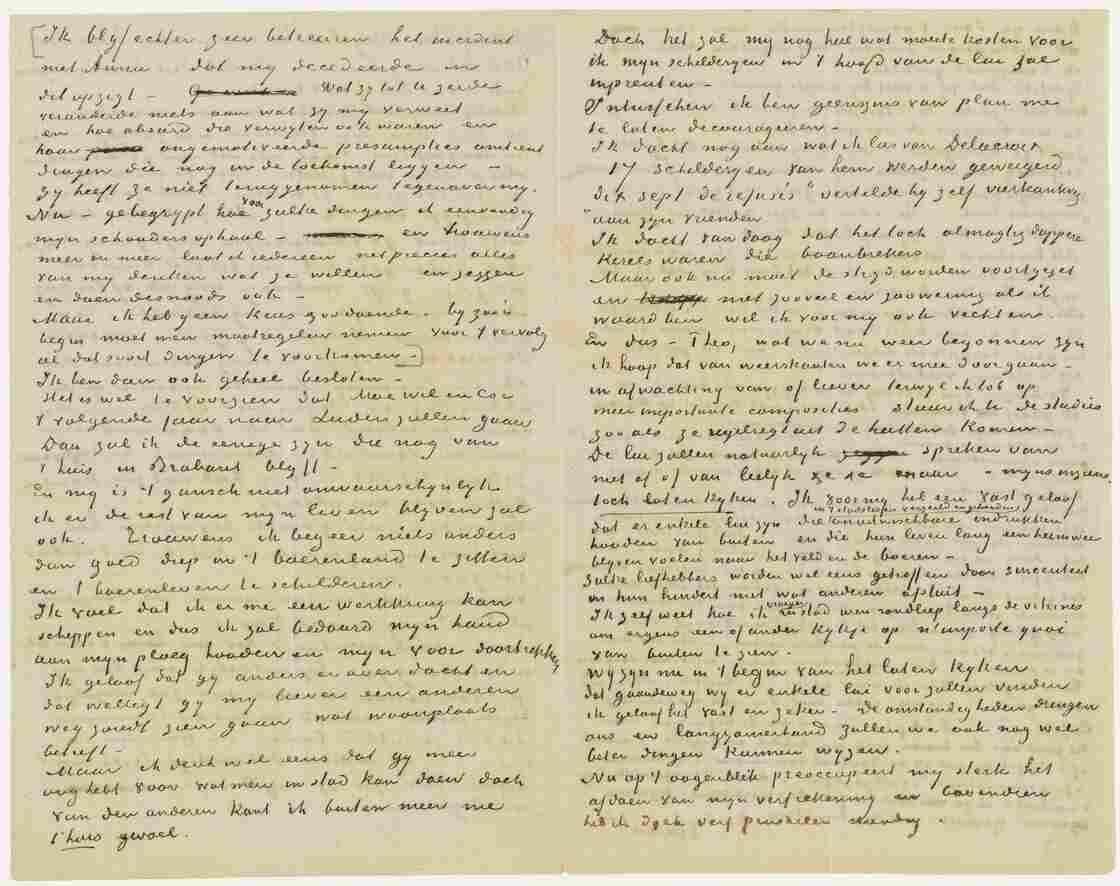 [Ik blyf echter zeer betreuren het incident
met Anna dat my decideerde in
dit opzigt – Wat zy tot U zeide
veranderde niets aan wat zy my verweet
en hoe absurd die verwyten ook waren en
haar ongemotiveerde presumpties omtrent
dingen die nog in de toekomst liggen –
zy heeft ze niet teruggenomen tegenover my.
Nu – ge begrypt hoe voor zulke dingen ik eenvoudig
myn schouders ophaal – en trouwens
meer en meer laat ik iedereen net precies alles
van my denken wat ze willen en zeggen
en doen desnoods ook –
Maar ik heb geen keus zoodoende. by zoo'n
begin moet men maatregelen nemen voor 't vervolg
al dat soort dingen te voorkomen –]
Ik ben dan ook geheel besloten –
Het is wel te voorzien dat Moe wil en Cor
't volgende jaar naar Leiden zullen gaan
Dan zal ik de eenige zyn die nog van
't huis in Brabant blyft –
En my is 't gansch niet onwaarschynlyk
ik er de rest van myn leven blyven zal
ook. Trouwens ik begeer niets anders
dan goed diep in 't boerenland te zitten
en 't boerenleven te schilderen.
Ik voel dat ik er me een werkkring kan
scheppen en dus ik zal bedaard myn hand
aan myn ploeg houden en myn voor doortrekken
Ik geloof dat gy anders er over dacht en
dat welligt gy my liever een anderen
weg zoudt zien gaan wat woonplaats
betreft –
Maar ik denk wel eens dat gy meer
oog hebt voor wat men in stad kan doen doch
van den anderen kant ik buiten meer me
t'huis gevoel.
Doch het zal my nog heel wat moeite kosten voor
ik myn schilderyen in 't hoofd van de lui zal
inprenten –
Intusschen ik ben geenszins van plan me
te laten decourageeren –
Ik dacht nog aan wat ik las van Delacroix
17 schilderyen van hem werden geweigerd
"dix sept de refusés" vertelde hy zelf vierkantweg
"aan zyn vrienden
Ik dacht van daag dat het toch almagtig dappere
kerels waren die baanbrekers
Maar ook nu moet de stryd worden voortgezet
en met zooveel en zoo weinig als ik
waard ben wil ik voor my ook vechten.
En dus – Theo, wat we nu weer begonnen zyn
ik hoop dat van weerskanten we er mee doorgaan –
in afwachting van of liever terwyl ik tob op
meer importante composities stuur ik U de studies
zoo als ze regelregt uit de hutten komen –
De lui zullen natuurlyk spreken van
niet af of van leelyk maar – myns inziens,
toch laten kyken. Ik voor my heb een vast geloof
dat er enkele lui zyn die onuitwischbare indrukken
houden van buiten en die hun leven lang een heimwee
blyven voelen naar het veld en de boeren –
Zulke liefhebbers worden wel eens getroffen door sinceriteit
en hun hindert niet wat anderen afsluit –
Ik zelf weet hoe ik vroeger in stad uren rondliep langs de vitrines
om ergens een of ander kykje op n'importe quoi
van buiten te zien.
Wy zyn nu in 't begin van het laten kyken
dat gaandeweg wy er enkele lui voor zullen vinden
ik geloof het vast en zeker – De omstandigheden dringen
ons en langzamerhand zullen we ook nog wel
beter dingen kunnen wyzen.
Nu op 't oogenblik preoccupeert my sterk het
afdoen van myn verfrekening en bovendien
heb ik doek verf penseelen noodig.